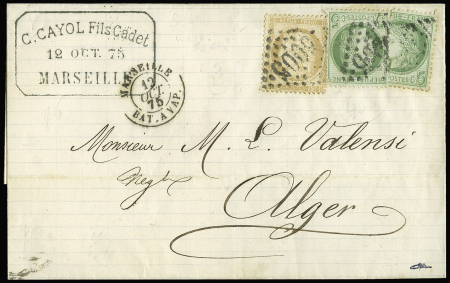 C. CAYOL Fils Cadet
12 OCT. 75
MARSEILLE
MARSEILLE
12
OCT.
75
BAT. A VAP.
Monsieur M. L. Valensi
Negt
Alger